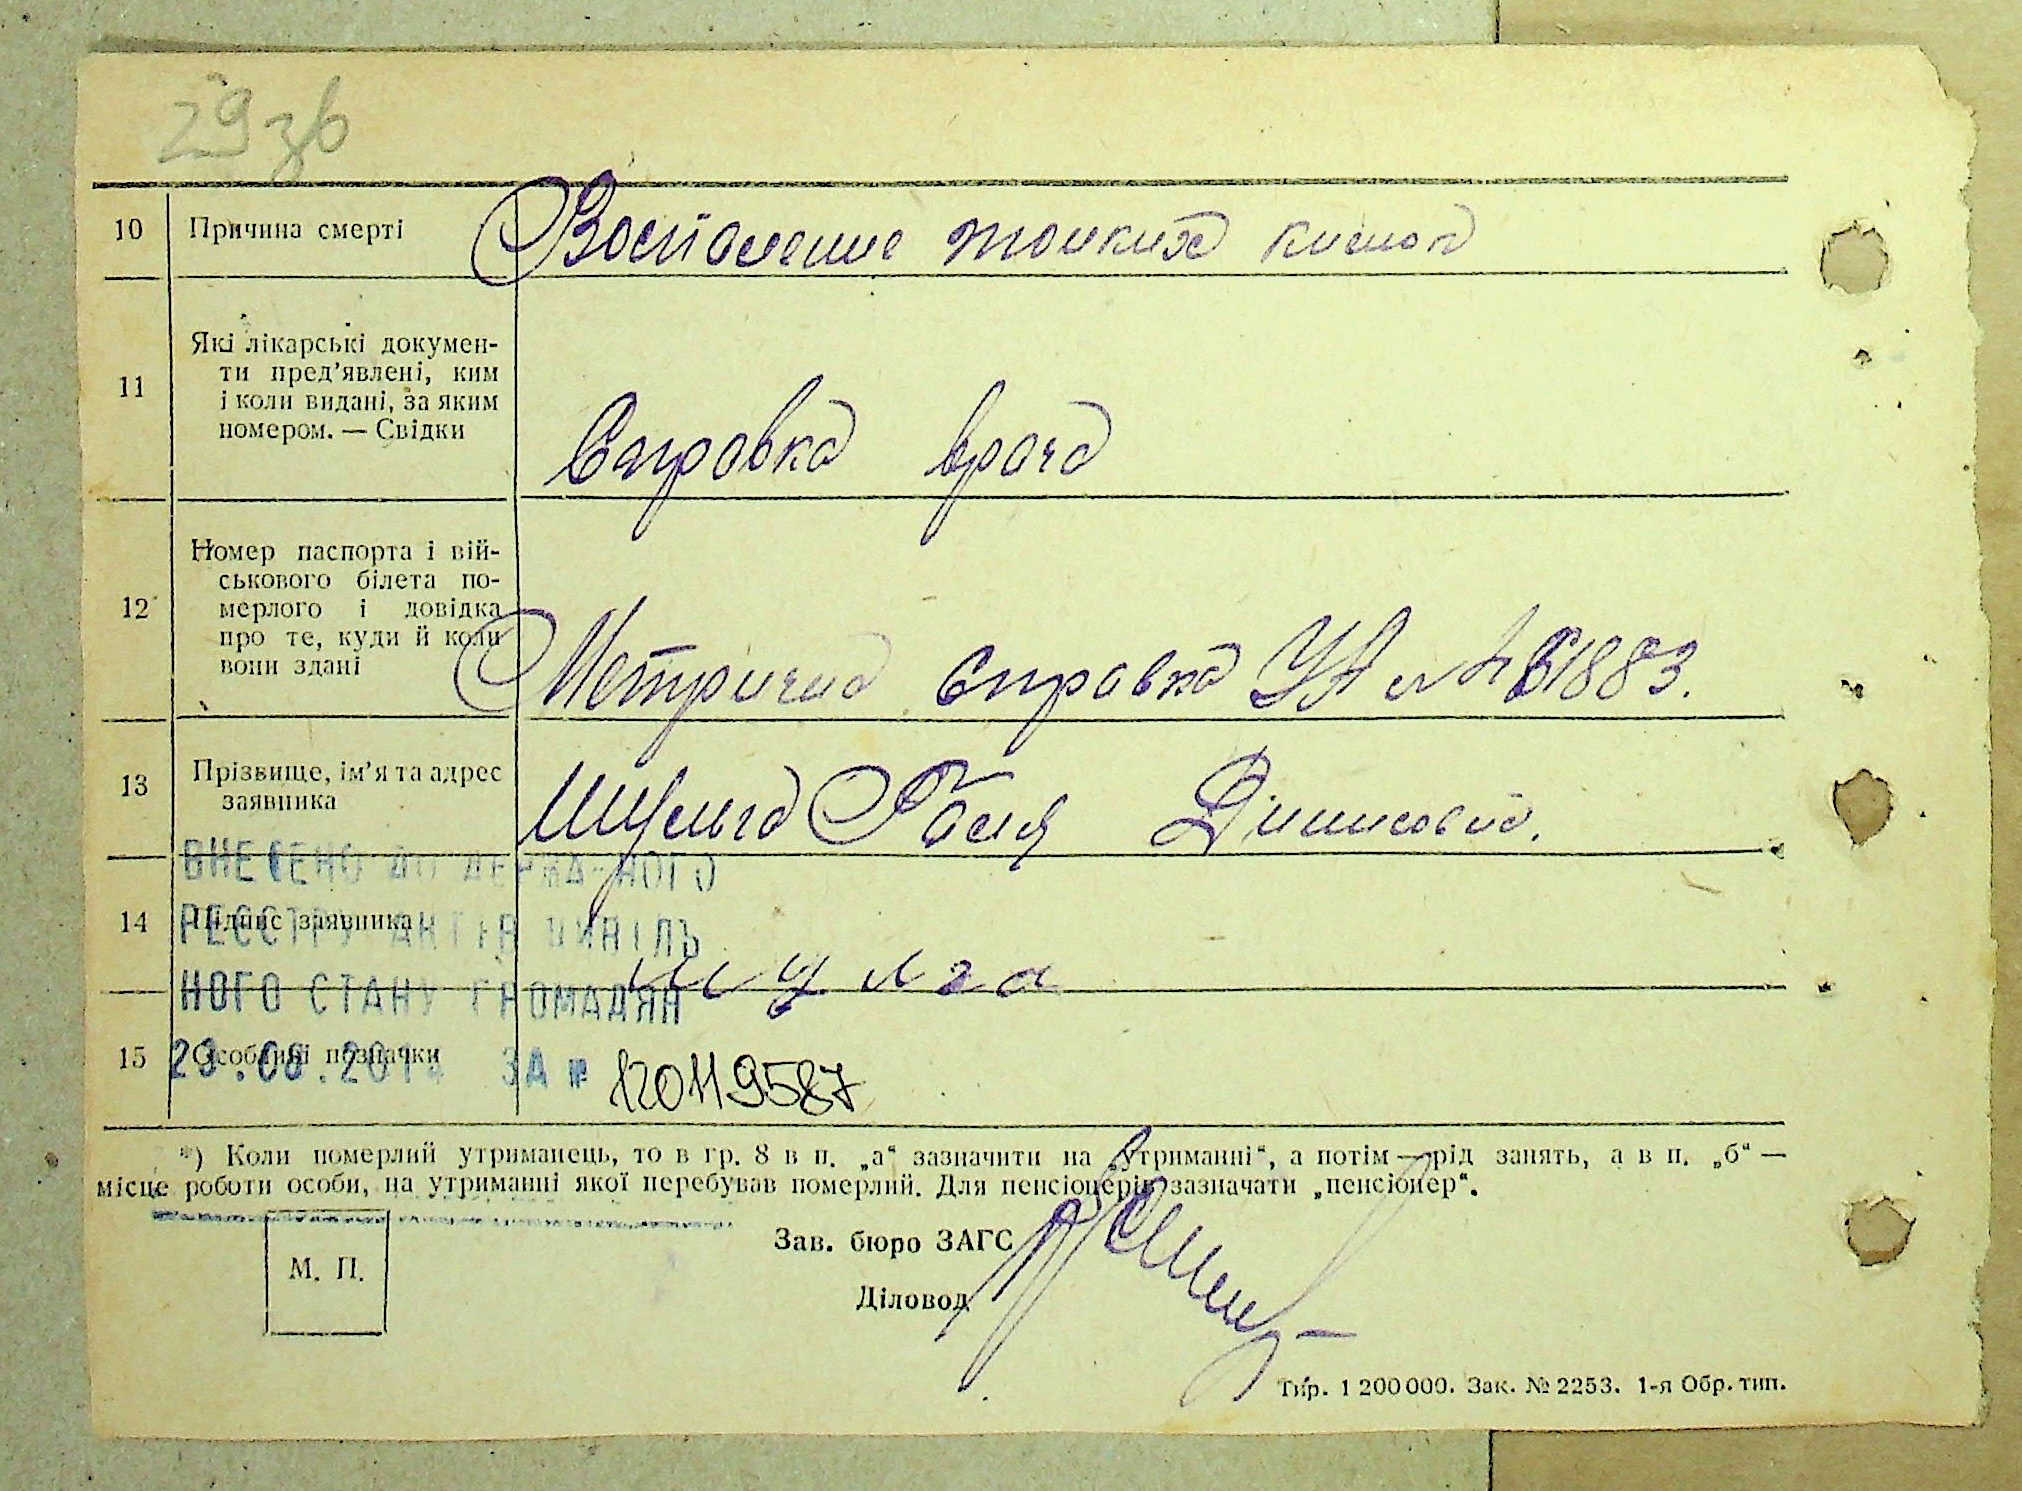 29 зв
10 Причина смерті Воспаление тонких кишок
11 Які лікарські докумен-
ти пред’явлені, ким
і коли видані, за яким
номером. — Свідки
Справка врача
12 Номер паспорта і вій-
ськового білета по-
мерлого і довідка
про те, куди й коли
вони здані
справка УА № 1883.
13 Прізвище, ім’я та адрес
заявника
Шульга
ВНЕСЕНО ДО ДЕРЖАВНОГО
14 Підпис заявника
РЕЄСТРУ АКТІВ ЦИВІЛЬ
Шулга
НОГО СТАНУ ГРОМАДЯН
15 Особливі позначки
.08.201 ЗА № 120119587
*) Коли померлий утриманець, то в гр. 8 в п. „а“ зазначити на „утриманні“, а потім — рід занять, а в п. „б“ —
місце роботи особи, на утриманні якої перебував померлий. Для пенсіонерів зазначати „пенсіонер“.
Зав. бюро ЗАГС
М. П.
Діловод
Тир. 1 200 000. Зак. № 2253. 1-я Обр. тип.